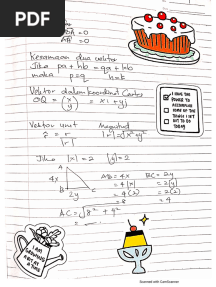 PDF
AB = 0
Kesamaan dua vektor
Jika pa + hb = qa + kb
maka p = q h = k
Vektor dalam koordinat Cartes
OQ = (x y) = xi + yj
Vektor unit Magnitud
r̂ = r / |r| |r| = √x² + y²
Jika |x| = 2 |y| = 2
A
4x
B 2y C
AB = 4x BC = 2y
= 4|x| = 2|y|
= 4(2) = 2(2)
= 8 = 4
AC = √8² + 4²
I HAVE THE
POWER TO
ACCOMPLISH
SOME OF THE
THINGS I SET
OUT TO DO
TODAY
I AM
LEARNING
A BIT AT
A TIME
Scanned with CamScanner